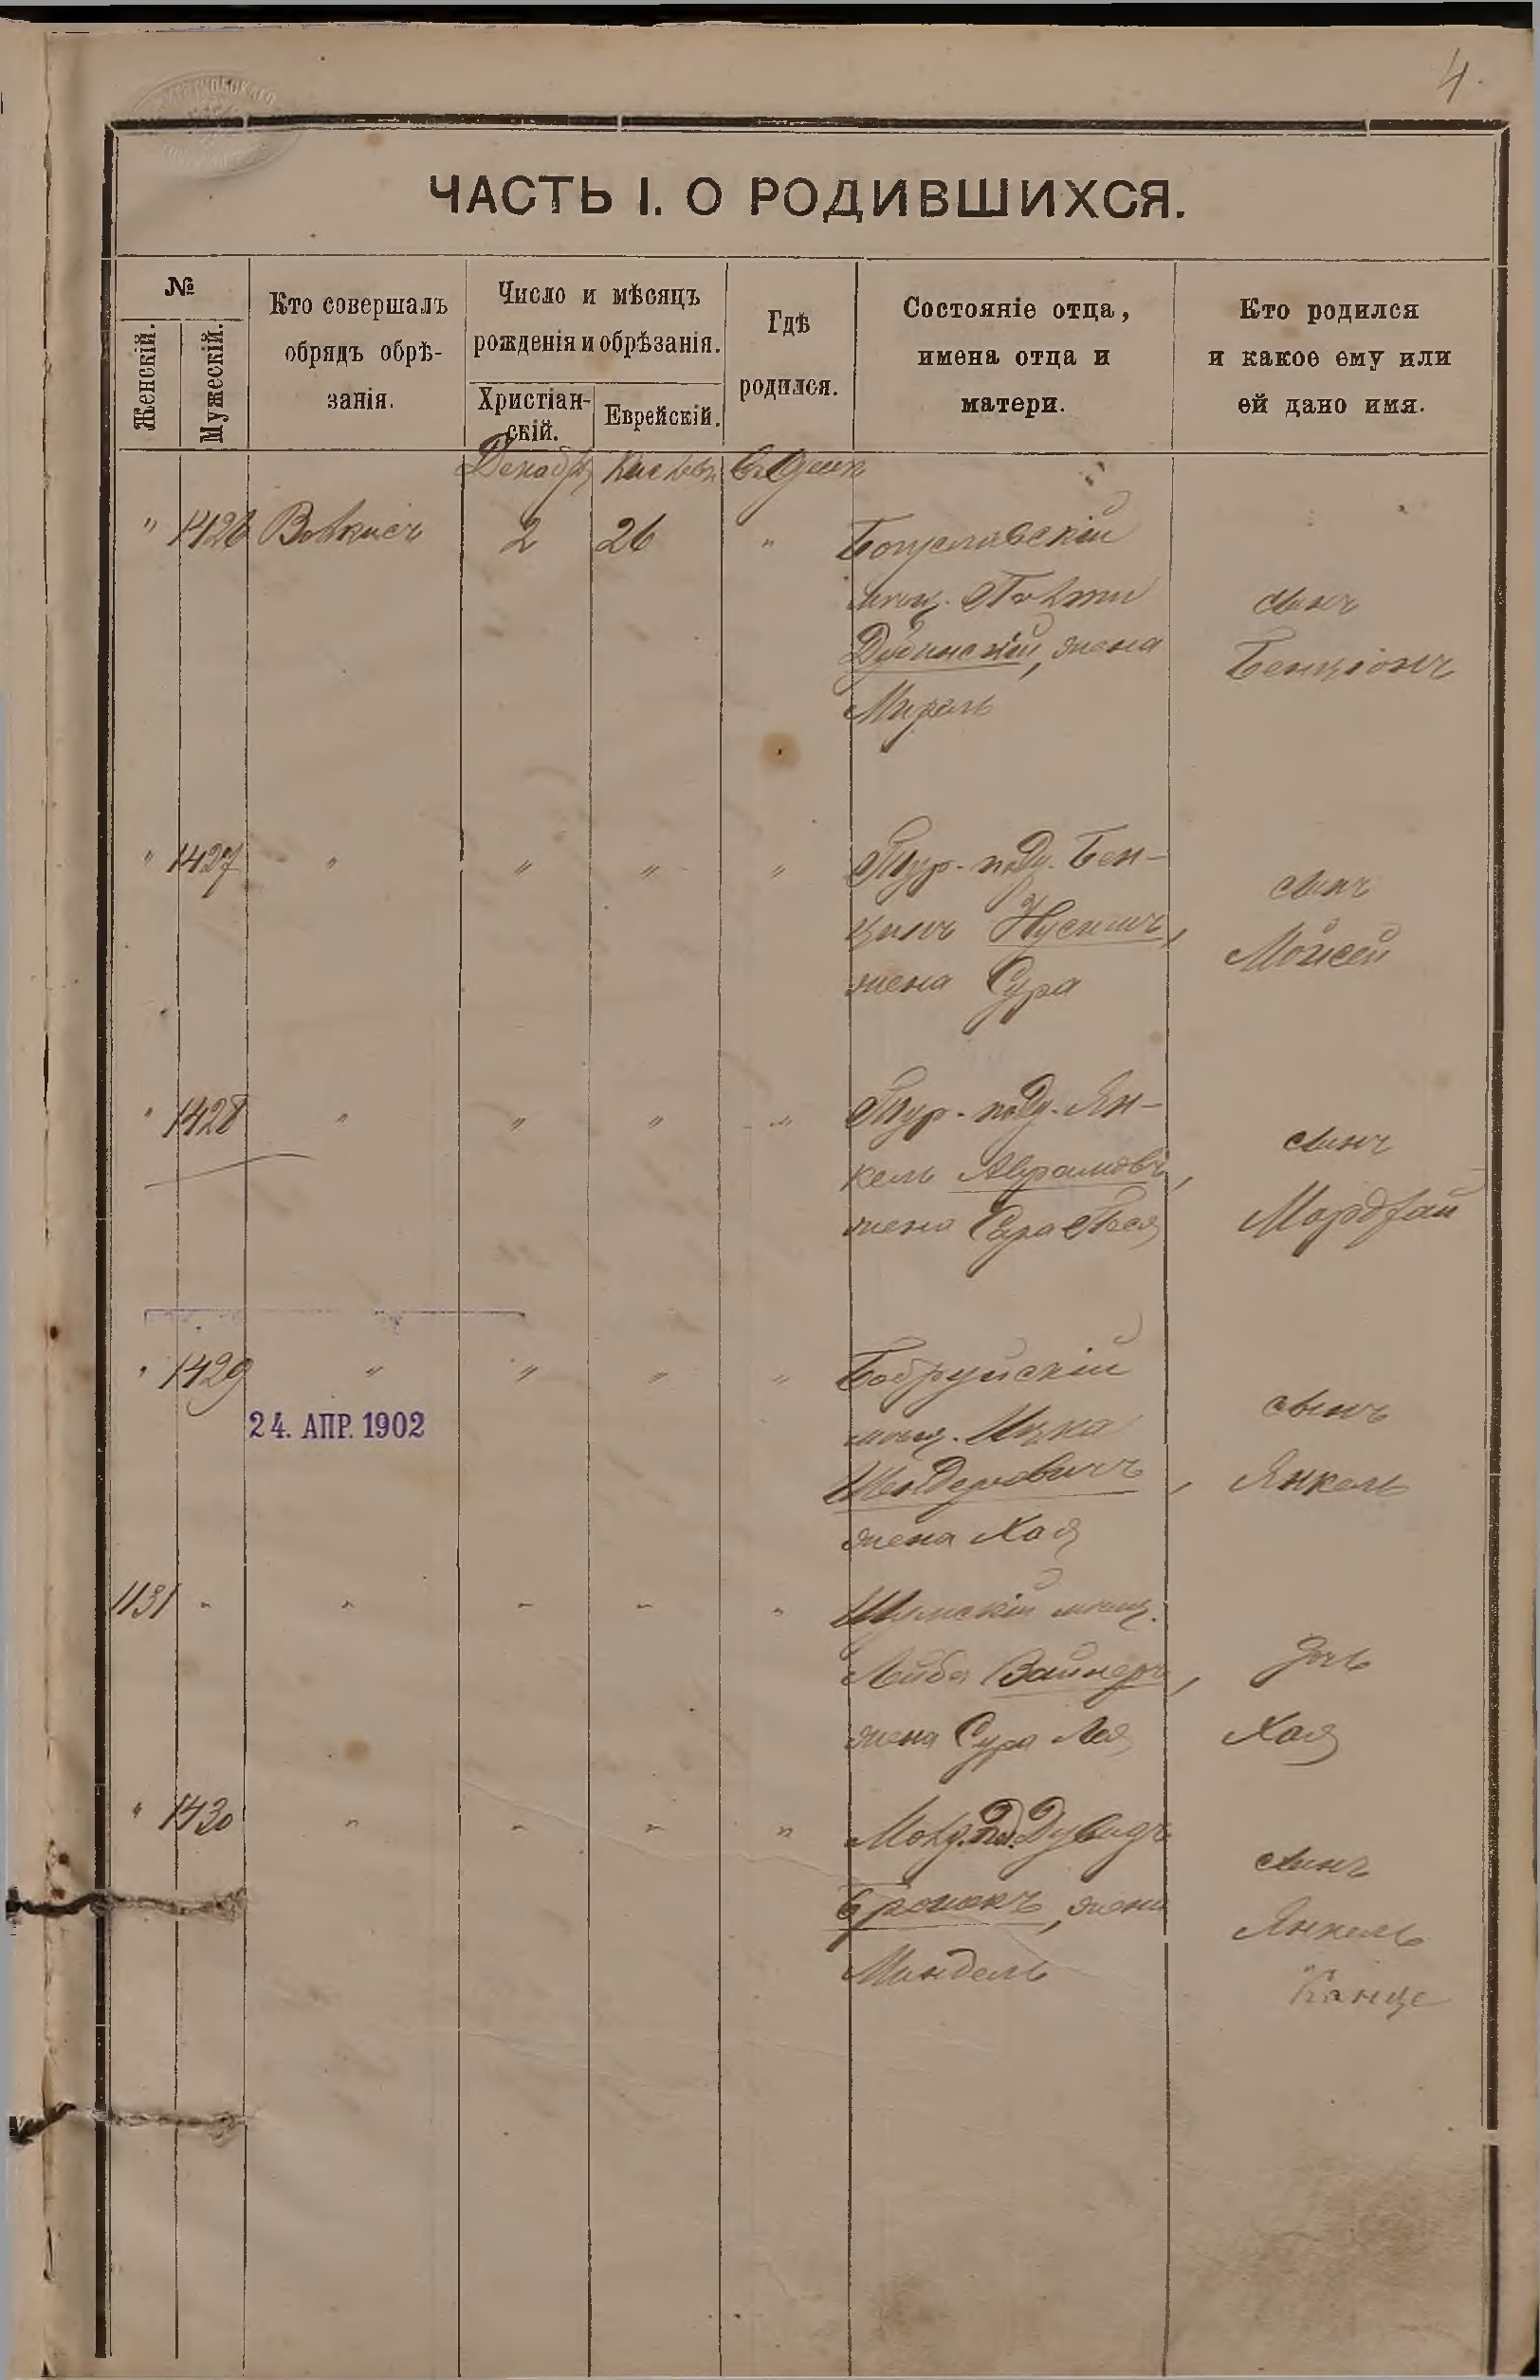 4.
ЧАСТЬ I. О РОДИВШИХСЯ.
№
Женскій.
Мужескій.
Кто совершалъ
обрядъ обрѣ-
занія.
Число и мѣсяцъ
рожденія и обрѣзанія.
Христіан-
скій.
Еврейскій.
Гдѣ
родился.
Состояніе отца,
имена отца и
матери.
Кто родился
и какое ему или
ей дано имя.
Декабрь
" 1426 2 26 "
Богуславскій
мѣщ.
Дубинскій, жена
Мирель
сынъ
Бенціонъ
" 1427 " " " "
Тур. подд. Бен-
ціонъ Нусинъ,
жена Сура
сынъ
Мойсей
" 1428 " " " "
Тур. подд. Ян-
кель Аврамовъ,
жена Сара
сынъ
" 1429 " " " "
24. АПР. 1902
Бобруйскій
мѣщ. Ицка
жена Хая
сынъ
Янкель
1131 " " " " "
Шумскій мѣщ.
Лейба Вайнеръ,
жена Сура Лея
дочь
Хая
" 1430 " " " "
Дувидъ
жена
Миндель
сынъ
Янкель